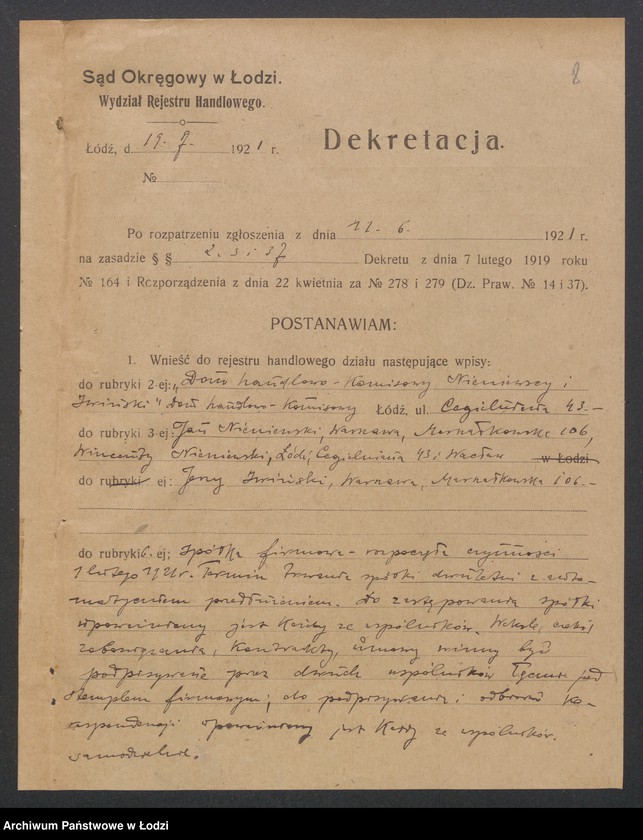 8
Sąd Okręgowy w Łodzi.
Wydział Rejestru Handlowego.
Łódź, d. 19. 7. 1921 r.
Dekretacja.
№
Po rozpatrzeniu zgłoszenia z dnia 11. 6. 1921 r.
na zasadzie § § 2. 3 i 37 Dekretu z dnia 7 lutego 1919 roku
№ 164 i Rozporządzenia z dnia 22 kwietnia za № 278 i 279 (Dz. Praw. № 14 i 37).
POSTANAWIAM:
1. Wnieść do rejestru handlowego działu następujące wpisy:
do rubryki 2-ej: „Dom handlowo-Komisowy Nieniewscy i
Iwiński" Dom handlowo-Komisowy Łódź, ul. Cegielniana 43.-
do rubryki 3-ej: Jan Nieniewski, Warszawa, Marszałkowska 106,
Wincenty Nieniewski, Łódź, Cegielniana 43 i Wacław w Łodzi
do rubryki ej: Jerzy Iwiński, Warszawa, Marszałkowska 106.-
do rubryki 6. ej; spółka firmowa - rozpoczęła czynności
1 lutego 1921 r. Termin trwania spółki dwuletni z auto-
matycznem przedłużeniem. Do zastępowania spółki
upoważniony jest każdy ze wspólników. Weksle, czeki
zobowiązania, kontrakty, umowy winny być
podpisywane przez dwuch wspólników łącznie pod
stemplem firmowym; do podpisywania i odbioru ko-
respondencji upoważniony jest każdy ze wspólników
samodzielnie.
Archiwum Państwowe w Łodzi